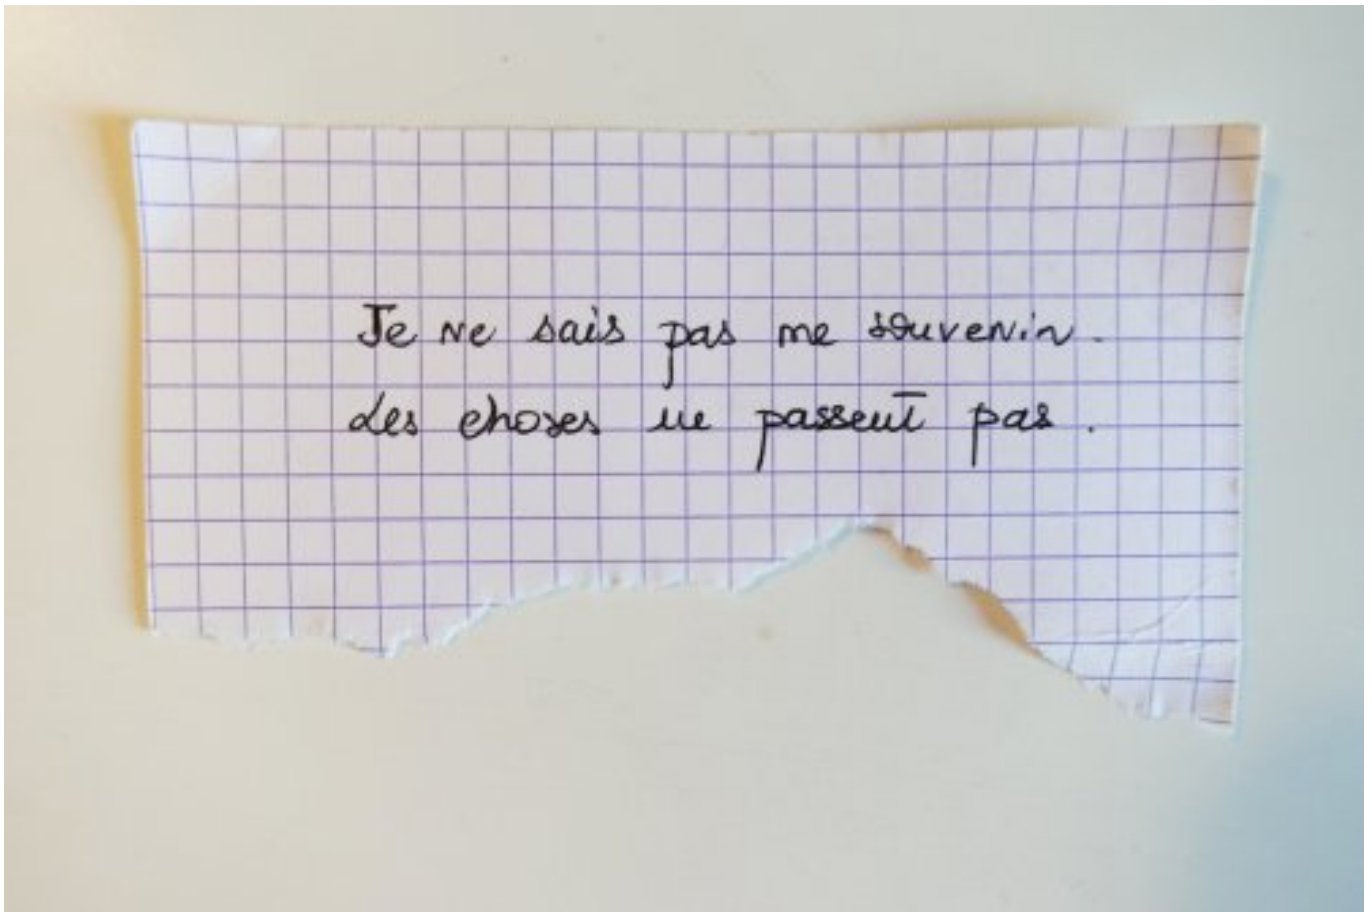 Je ne sais pas me souvenir.
des choses ne passent pas.